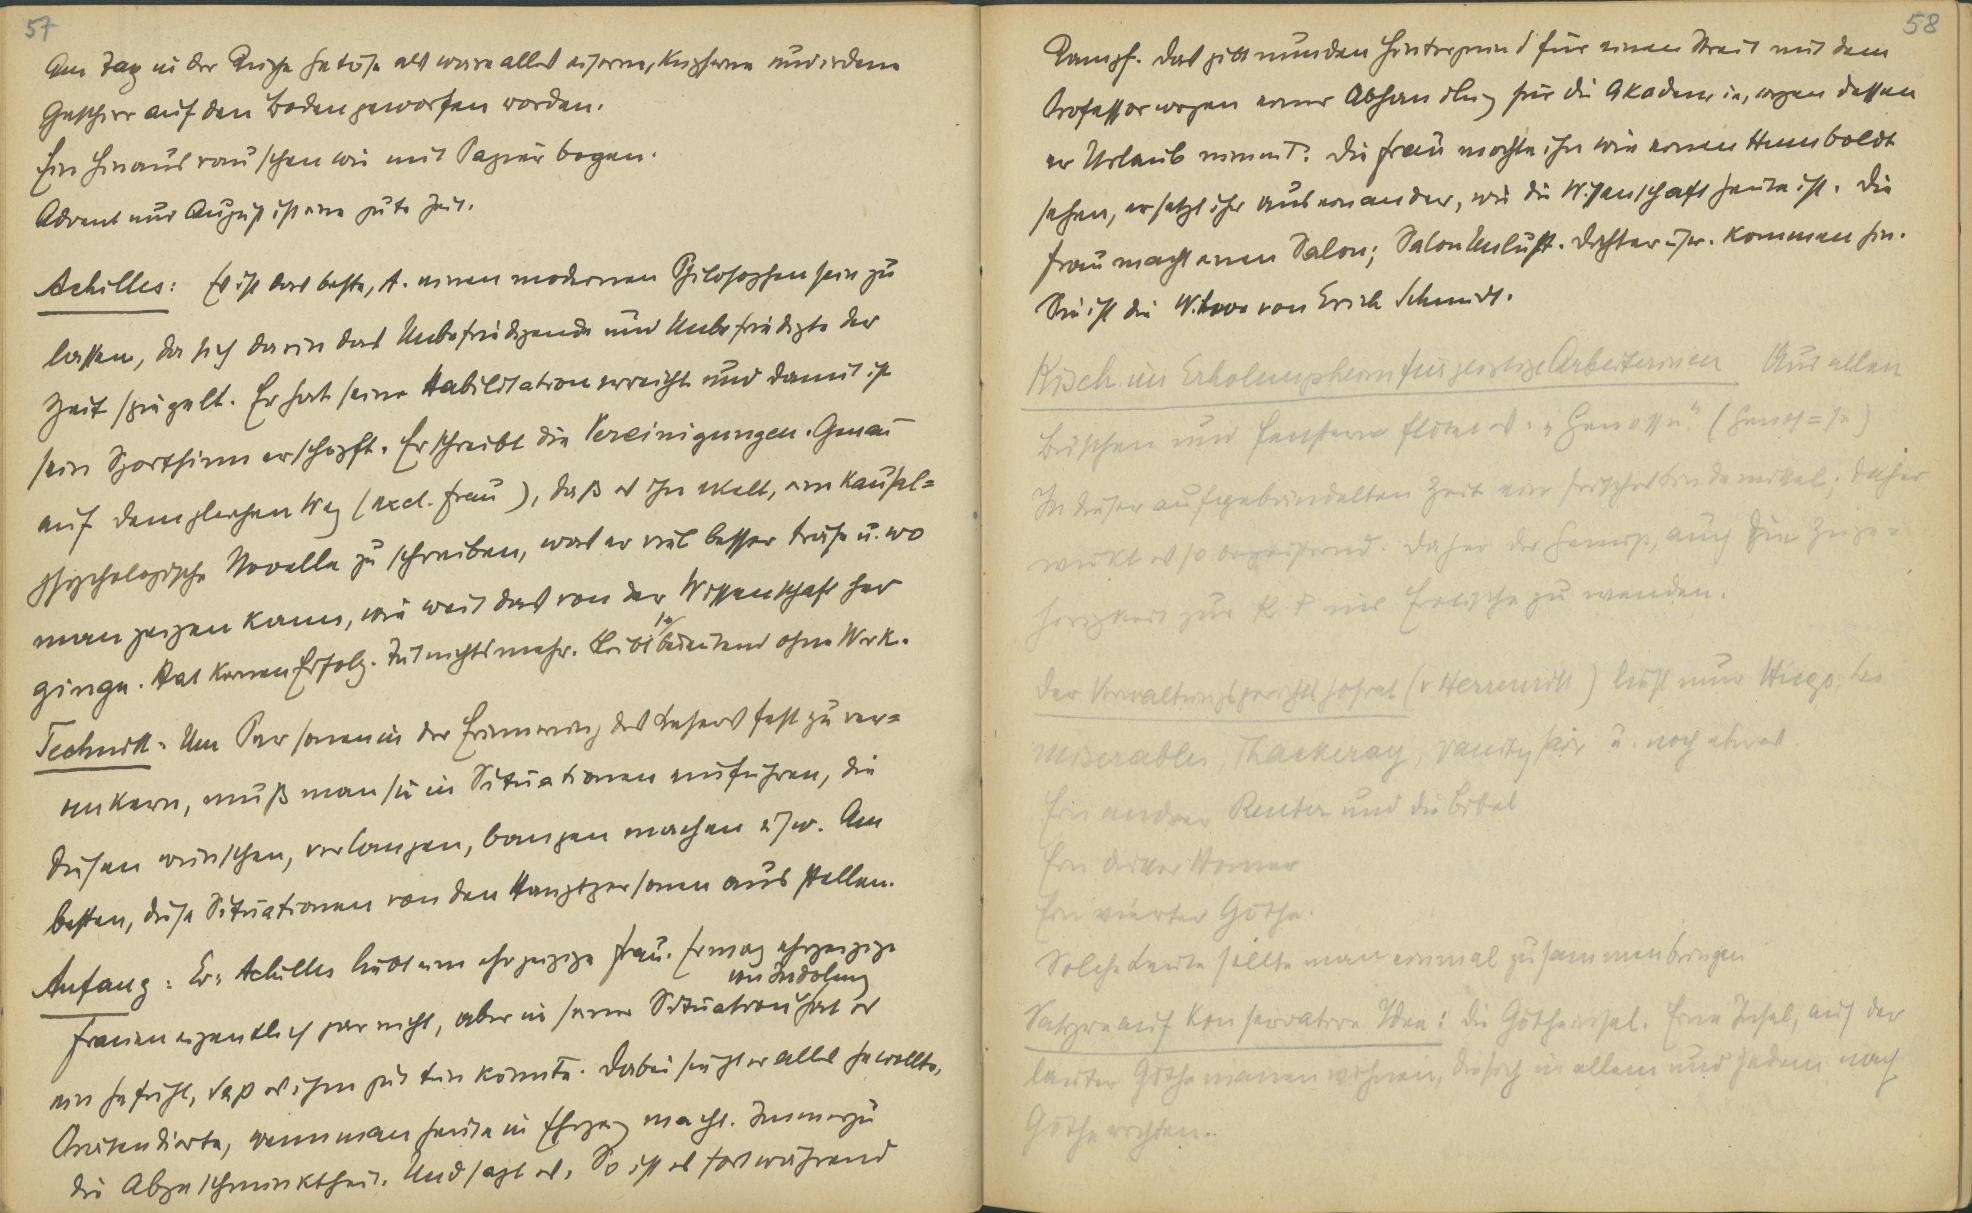 57
Am Tag in der Küche Getöse als wäre alles eiserne, kupferne und irdene
Geschirr auf den Boden geworfen worden.
Ein Hinausrauschen wie mit Papierbogen.
Advent nur August ist eine gute Zeit.
Achilles: Es ist das beste, A. einen modernen Philosophen sein zu
lassen, da sich darin das Unbefriedigende und Unbefriedigte der
Zeit spiegelt. Er hat seine Habilitation erreicht und damit ist
sein Sportsinn erschöpft. Er schreibt die Vereinigungen. Genau
auf dem gleichen Weg (excl. Frau), daß es ihn ekelt, eine kausal=
psychologische Novelle zu schreiben, was er viel besser träfe u. wo
man zeigen kann, wie weit das von der Wissenschaft her
ginge. Hat keinen Erfolg. Tut nichts mehr. Bleibt bedeutend ohne Werk.
Technik: Um Personen in der Erinnerung des Lesers fest zu ver=
ankern, muß man sie in Situationen einführen, die
diesen wünschen, verlangen, bangen machen usw. Am
besten, diese Situationen von den Hauptpersonen aus stellen.
Anfang: Er: Achilles liebt eine ehrgeizige Frau. Er mag ehrgeizige
Frauen eigentlich gar nicht, aber in seiner Situation hat er
ein Gefühl, daß es ihm gut tun könnte. Dabei sieht er alles Gewollte,
Prätendierte, wenn man heute in Ehrgeiz macht. Immerzu
die Abgeschminktheit. Und sagt es. So ist es fortwährend
58
Kampf. Das gibt nun den Hintergrund für einen Streit mit dem
Professor wegen einer Abhandlung für die Akademie, wegen dessen
er Urlaub nimmt. Die Frau möchte ihn wie einen Humboldt
sehen, er setzt ihr auseinander, wie die Wissenschaft heute ist. Die
Frau macht einen Salon; Salonunlust. Dichter usw. kommen hin.
Sie ist die Witwe von Erich Schmidt.
Kisch im Erholungsheim für geistige Arbeiterinnen Aus allen
Büschen und Fenstern flötet es: „Genosse" (Genos=se)
In dieser aufgebündelten Zeit ein frisches Bindemittel; daher
wirkt es so begeisternd. Daher der Genuß, auch die Zuge=
hörigkeit zur K P ins Erotische zu wenden.
Der Verwaltungsgerichtshofrat (v Herrenritt) liest nur Hugo, Les
Miserables, Thackeray, Vanity fair u. noch etwas.
Ein andrer Reuter und die Bibel
Ein dritter Homer
Ein vierter Göthe.
Solche Leute sollte man einmal zusammenbringen
Satyre auf konservative Idee: Die Götheinsel. Eine Insel, auf der
lauter Göthemanen wohnen, die sich in allem und jedem nach
Göthe richten.